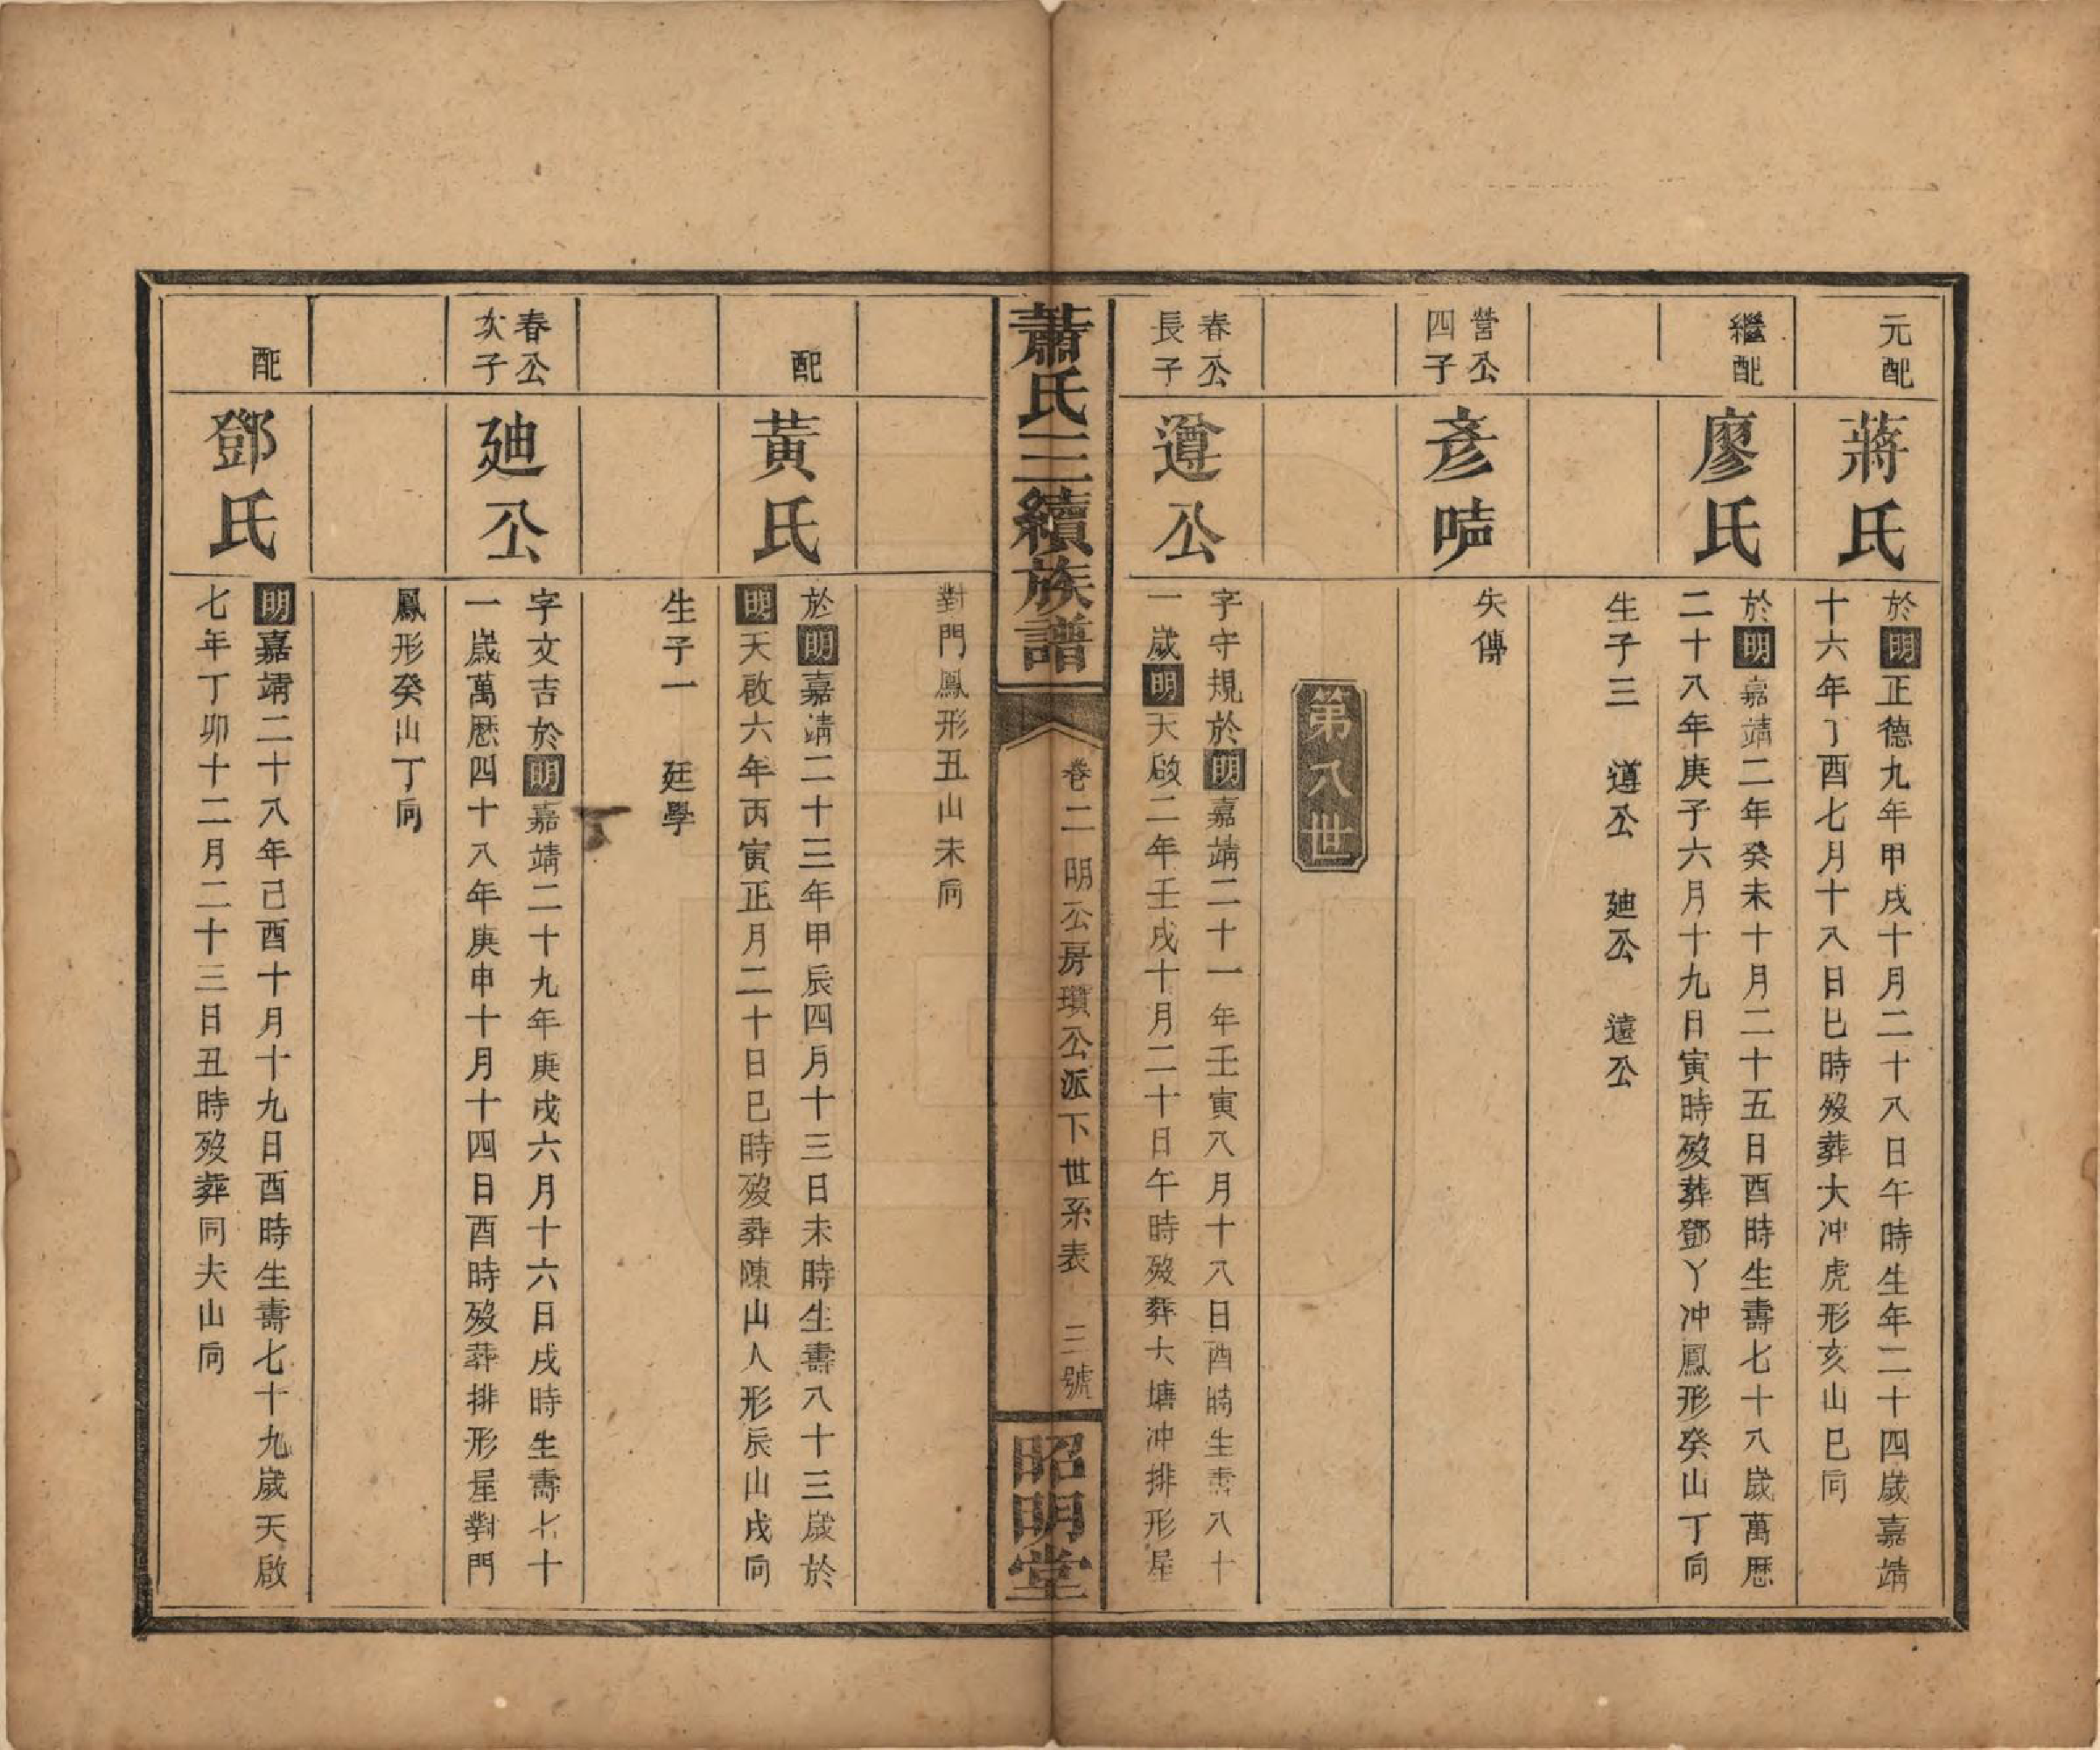 元配
蔣氏
於明正德九年甲戌十月二十八日午時生年二十四歲嘉靖
十六年丁酉七月十八日巳時歿葬大冲虎形亥山巳向
繼配
廖氏
於明嘉靖二年癸未十月二十五日酉時生壽七十八歲萬歷
二十八年庚子六月十九日寅時歿葬鄧丫冲鳳形癸山丁向
生子三　遵公　廸公　遠公
營公
四子
彥
失傳
第八世
春公
長子
遵公
字守規於明嘉靖二十一年壬寅八月十八日酉時生壽八十
一歲明天啟二年壬戌十月二十日午時歿葬大塘冲排形屋
蕭氏三續族譜
卷二　明公房瓚公派下世系表　三號
昭明堂
對門鳳形丑山未向
配
黃氏
於明嘉靖二十三年甲辰四月十三日未時生壽八十三歲於
明天啟六年丙寅正月二十日巳時歿葬陳山人形辰山戌向
生子一　廷學
春公
次子
廸公
字文吉於明嘉靖二十九年庚戌六月十六日戌時生壽七十
一歲萬歷四十八年庚申十月十四日酉時歿葬排形屋對門
鳳形癸山丁向
配
鄧氏
明嘉靖二十八年己酉十月十九日酉時生壽七十九歲天啟
七年丁卯十二月二十三日丑時歿葬同夫山向